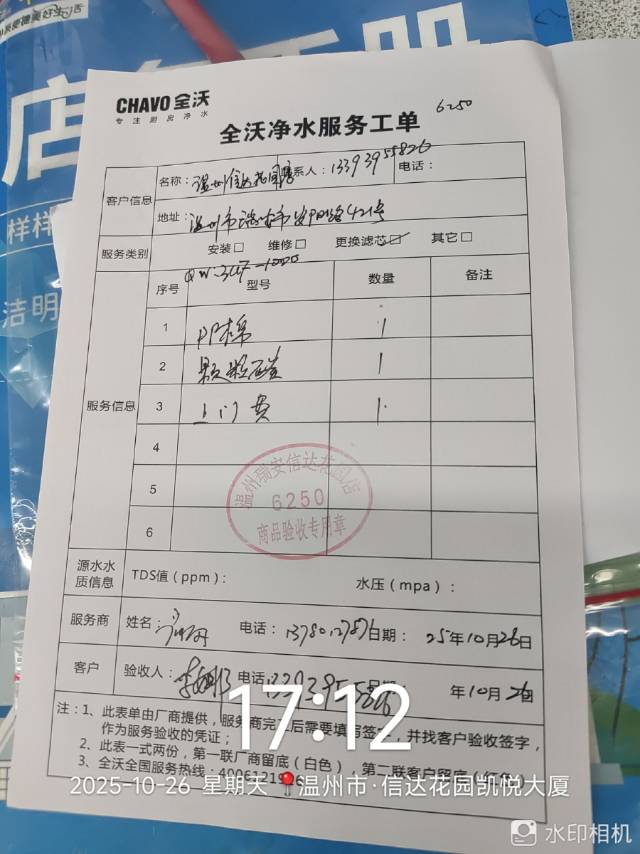 CHAVO 全沃
专注厨房净水
6250
全沃净水服务工单
客户信息
名称：温州信达花园店 联系人：13393955826 电话：
地址：温州市瑞安市安阳路421号
服务类别 安装□ 维修□ 更换滤芯☑ 其它□
QW-347-1000
服务信息
序号 型号 数量 备注
1 PP棉 1
2 颗粒碳 1
3 上门费 1
4
5
6
温州瑞安信达花园店
6250
商品验收专用章
源水水质信息 TDS值（ppm）： 水压（mpa）：
服务商 姓名： 电话：13780127876 日期：25年10月26日
客户 验收人： 电话 日期 年10月26日
注：1、此表单由厂商提供，服务商完工后需要填写签字，并找客户验收签字，
作为服务验收的凭证；
2、此表一式两份，第一联厂商留底（白色），第二联客户留底（红色）
3、全沃全国服务热线：4006121
17:12
2025-10-26 星期天 温州市·信达花园凯悦大厦
水印相机
店
样样
洁明